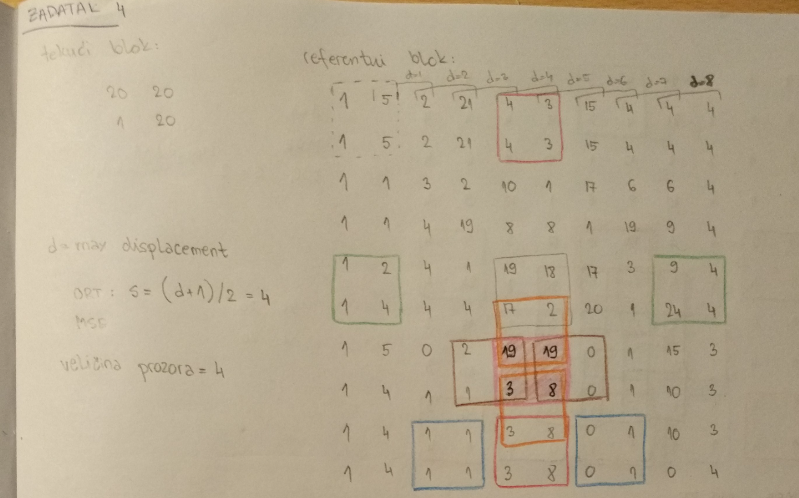 ZADATAK 4
tekući blok:
20 20
1 20
d = max displacement
ORT: s = (d+1)/2 = 4
MSE
veličina prozora = 4
referentni blok:
d=1 d=2 d=3 d=4 d=5 d=6 d=7 d=8
1 5 2 21 4 3 15 4 4 4
1 5 2 21 4 3 15 4 4 4
1 1 3 2 10 1 17 6 6 4
1 1 4 19 8 8 1 19 9 4
1 2 4 1 19 18 17 3 9 4
1 4 4 4 17 2 20 1 24 4
1 5 0 2 19 19 0 1 15 3
1 4 1 1 3 8 0 1 10 3
1 4 1 1 3 8 0 1 10 3
1 4 1 1 3 8 0 1 0 4